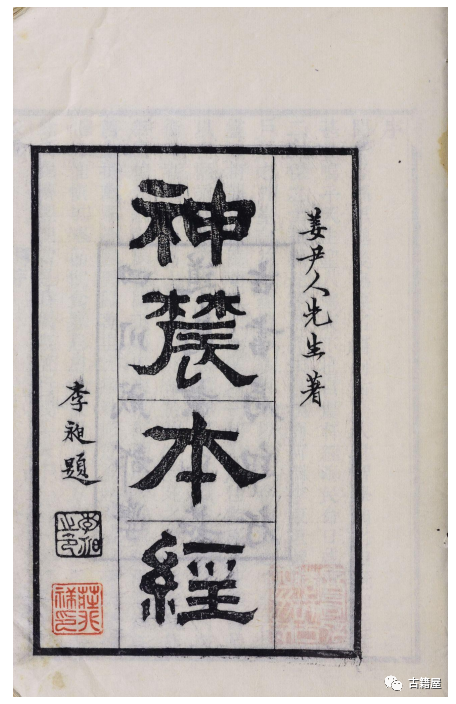 姜尹人先生著
神辳本經
李題
古籍屋